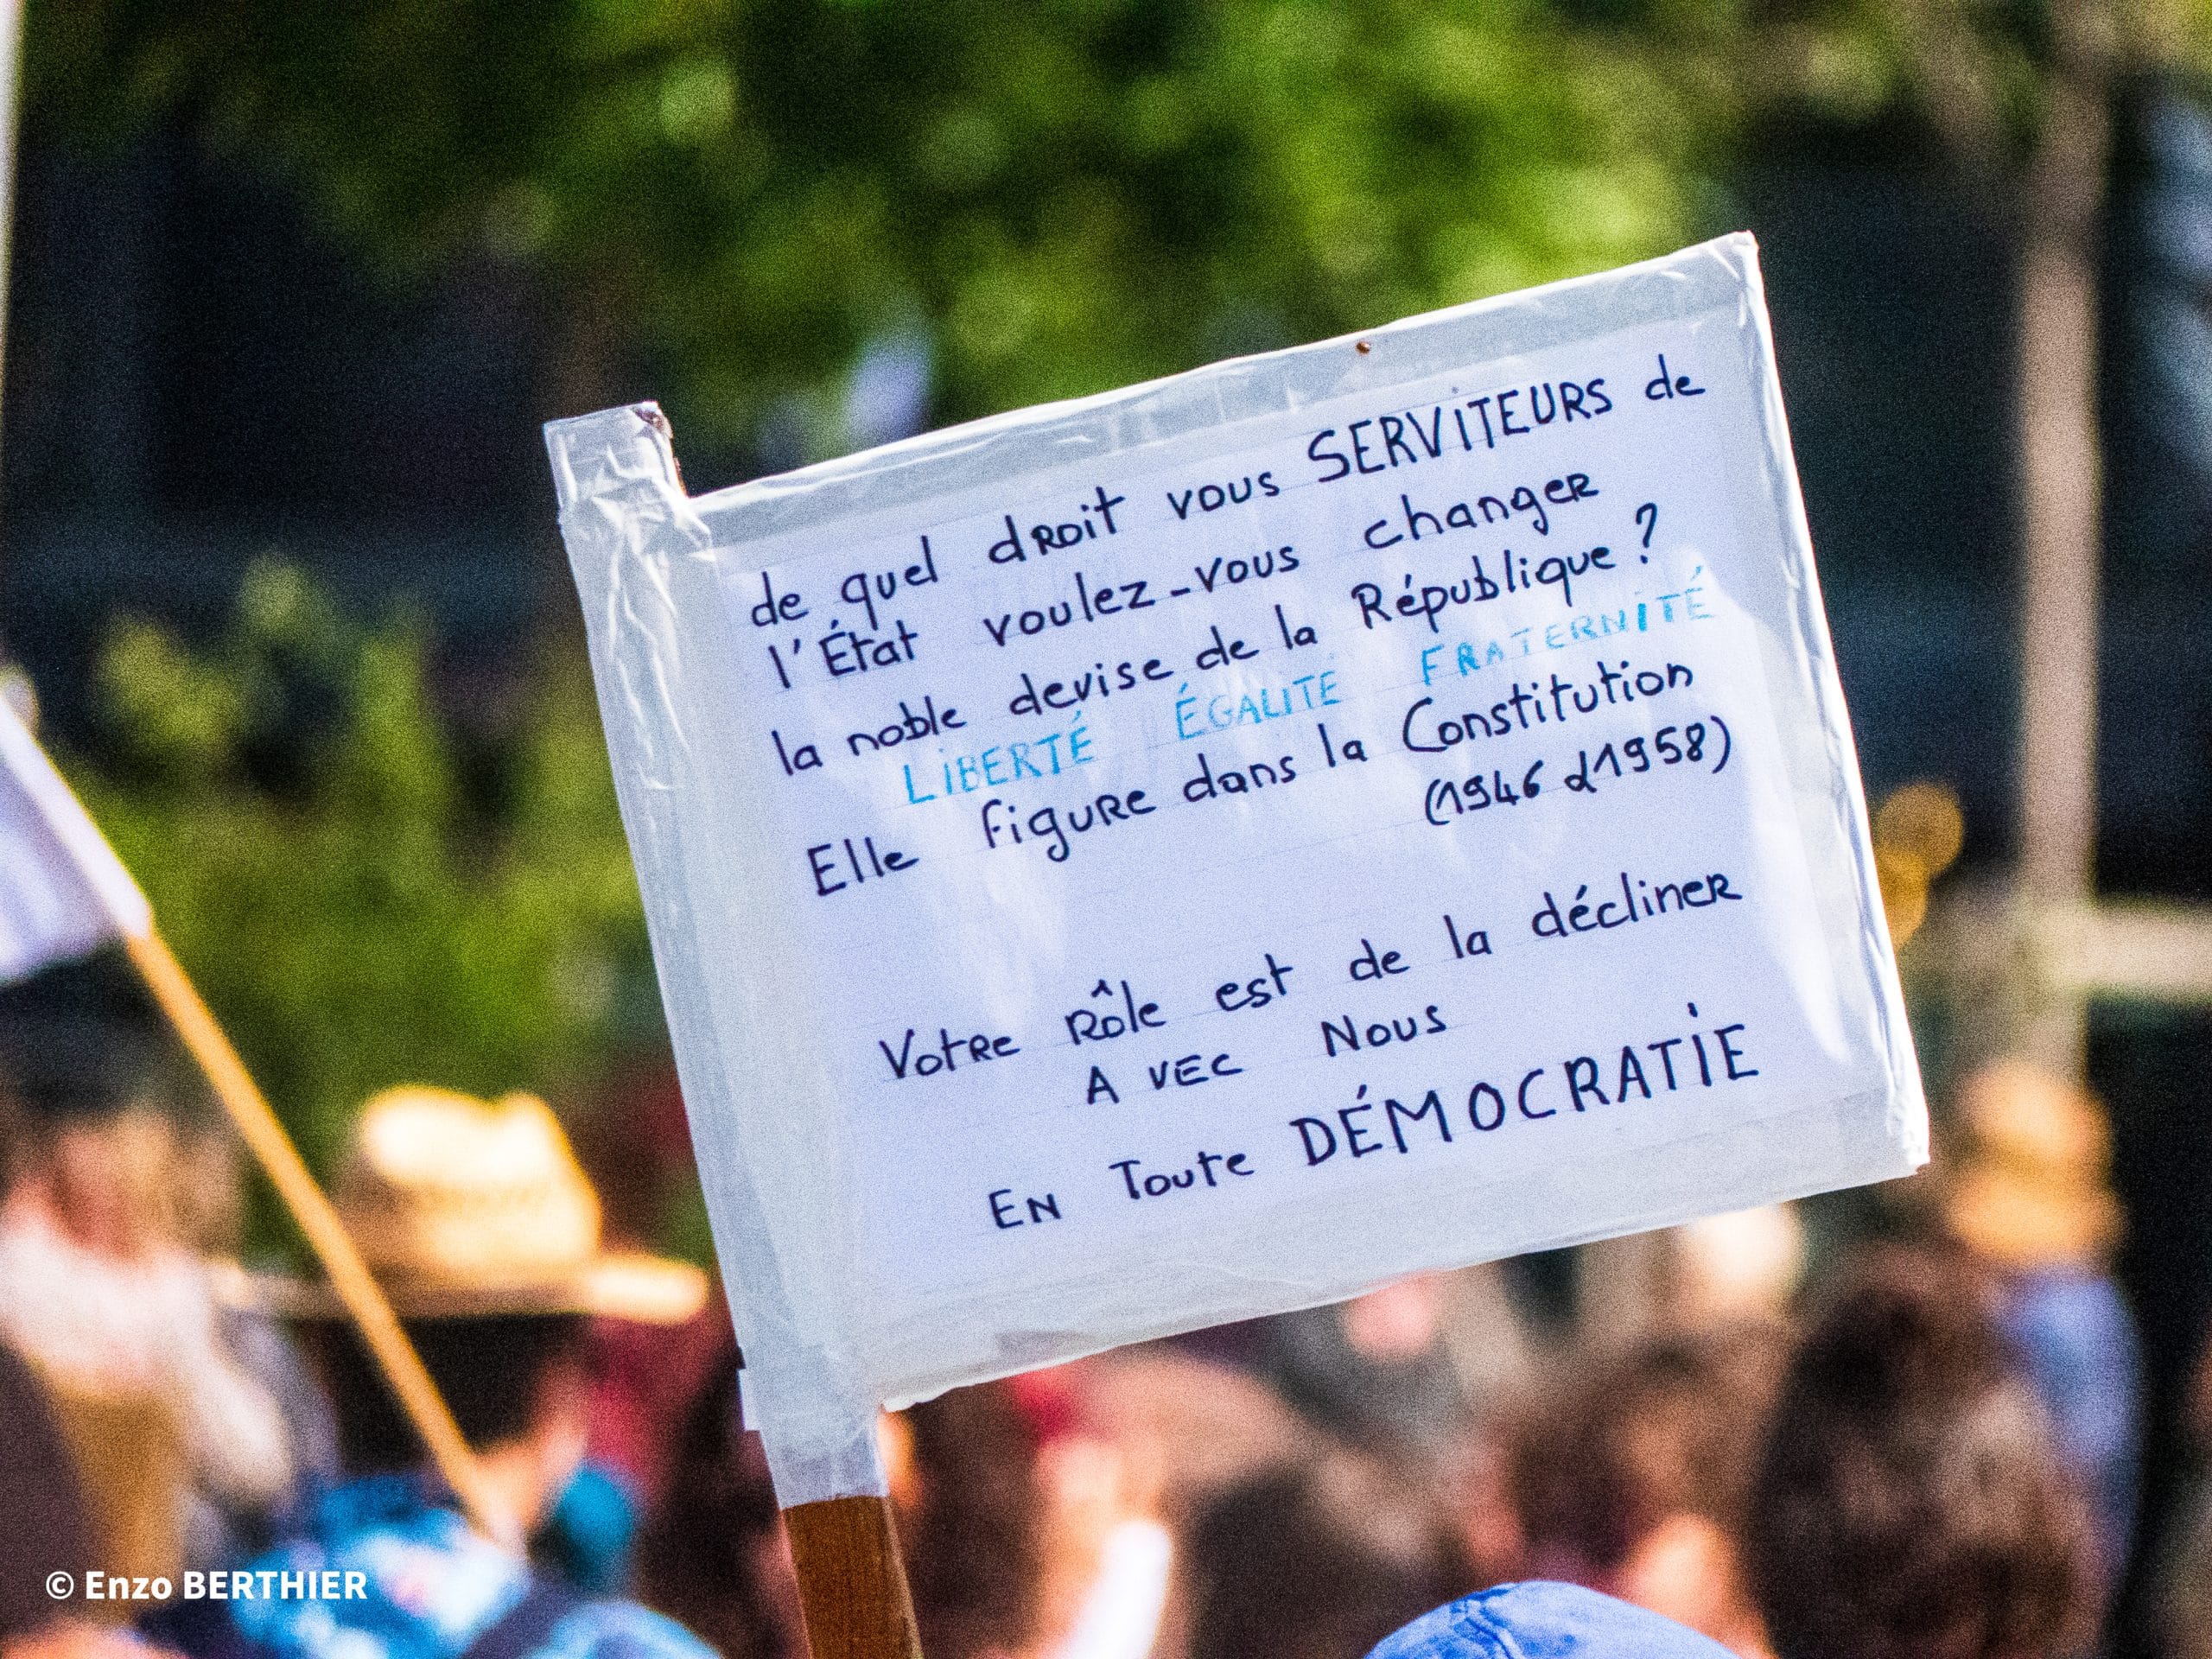 de quel droit vous SERVITEURS de
l'État voulez-vous changer
la noble devise de la République ?
LIBERTÉ ÉGALITÉ FRATERNITÉ
Elle figure dans la Constitution
(1946 & 1958)
Votre Rôle est de la décliner
AVEC NOUS
EN Toute DÉMOCRATIE
© Enzo BERTHIER